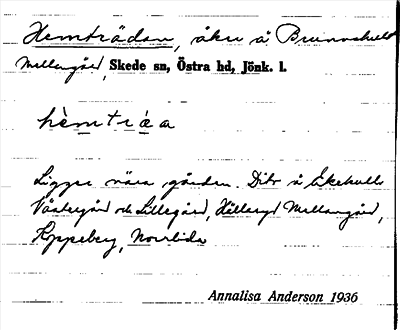 Hemträdan, åker å Brunnskulla
Mellangård, Skede sn, Östra hd, Jönk. l.
hèmtrá̱a
Ligger nära gården. Dito å Ekekulls
Västergård och Lillegård, Hällaryd Mellangård,
Koppeberg, Norrlida
Annalisa Anderson 1936